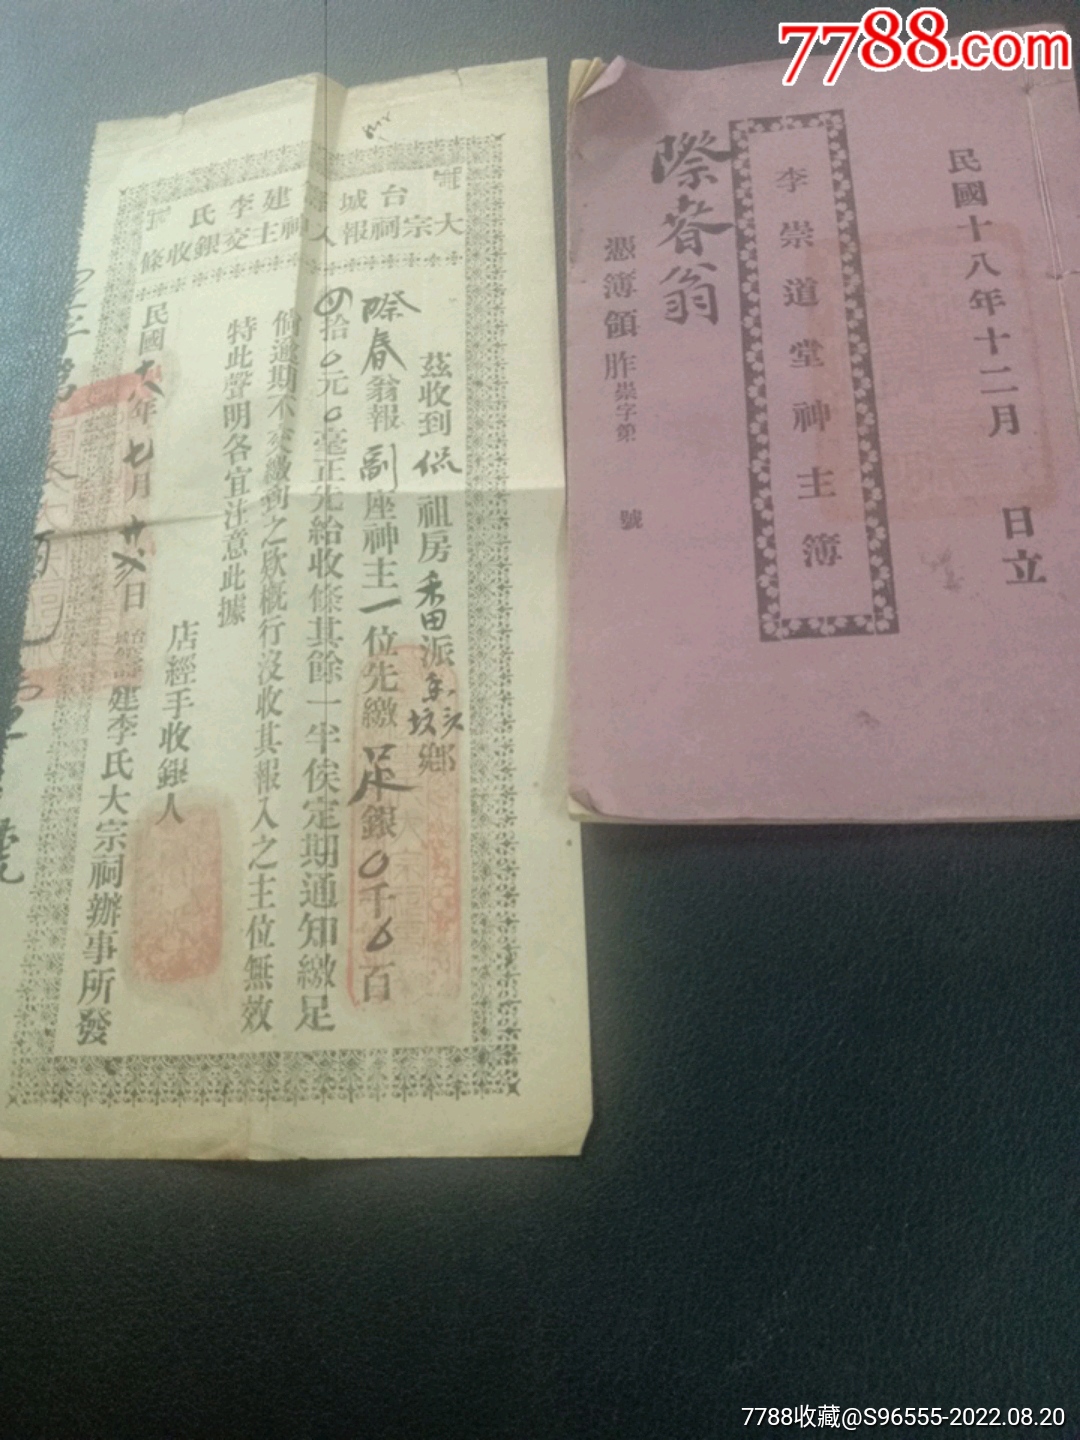 7788.com
民國十八年十二月 日立
李崇道堂神主簿
際春翁
憑簿領胙崇字第 號
台城 建李氏
大宗祠報入神主交銀收條
茲收到侃祖房番派
鄉
際春翁報副座神主一位先繳足銀0千6百
拾0元0毫正先給收條其餘一半俟定期通知繳足
倘逾期不交繳到之欵概行沒收其報入之主位無效
特此聲明各宜注意此據
店經手收銀人
民國十八年七月 日
建李氏大宗祠辦事所發
7788收藏@S96555-2022.08.20